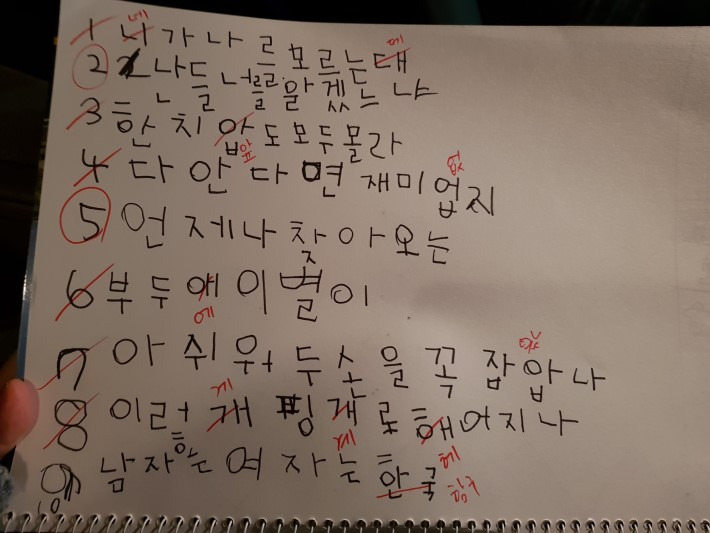 네
1 니가 나르 모르는대 데
2 난들 너를 알겠느냐
3 한치 압도 모두몰라
앞
4 다 안다면 재미업지 없
5 언제나 찾아오는
6 부두애 이별이
에
7 아쉬워 두손을 꼭 잡압나 았
8 이럼 개 핑개로 해어지나
게 계 헤
9 남자는 여자는
항
10